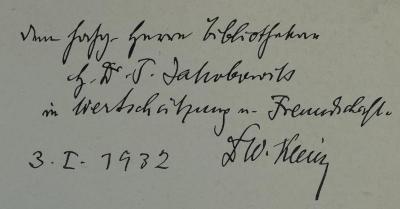 dem Herrn Bibliothekar
H. Dr. T. Jakobowits
in Wertschätzung u. Freundschaft.
3. I. 1932 Dr W. Klein